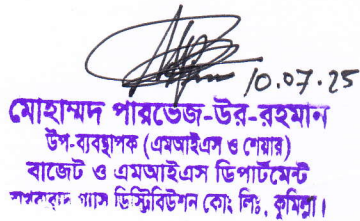 10.07.25
মোহাম্মদ পারভেজ-উর-রহমান
উপ-ব্যবস্থাপক (এমআইএস ও শেয়ার)
বাজেট ও এমআইএস ডিপার্টমেন্ট
গ্যাস ডিস্ট্রিবিউশন কোং লিঃ, কুমিল্লা।